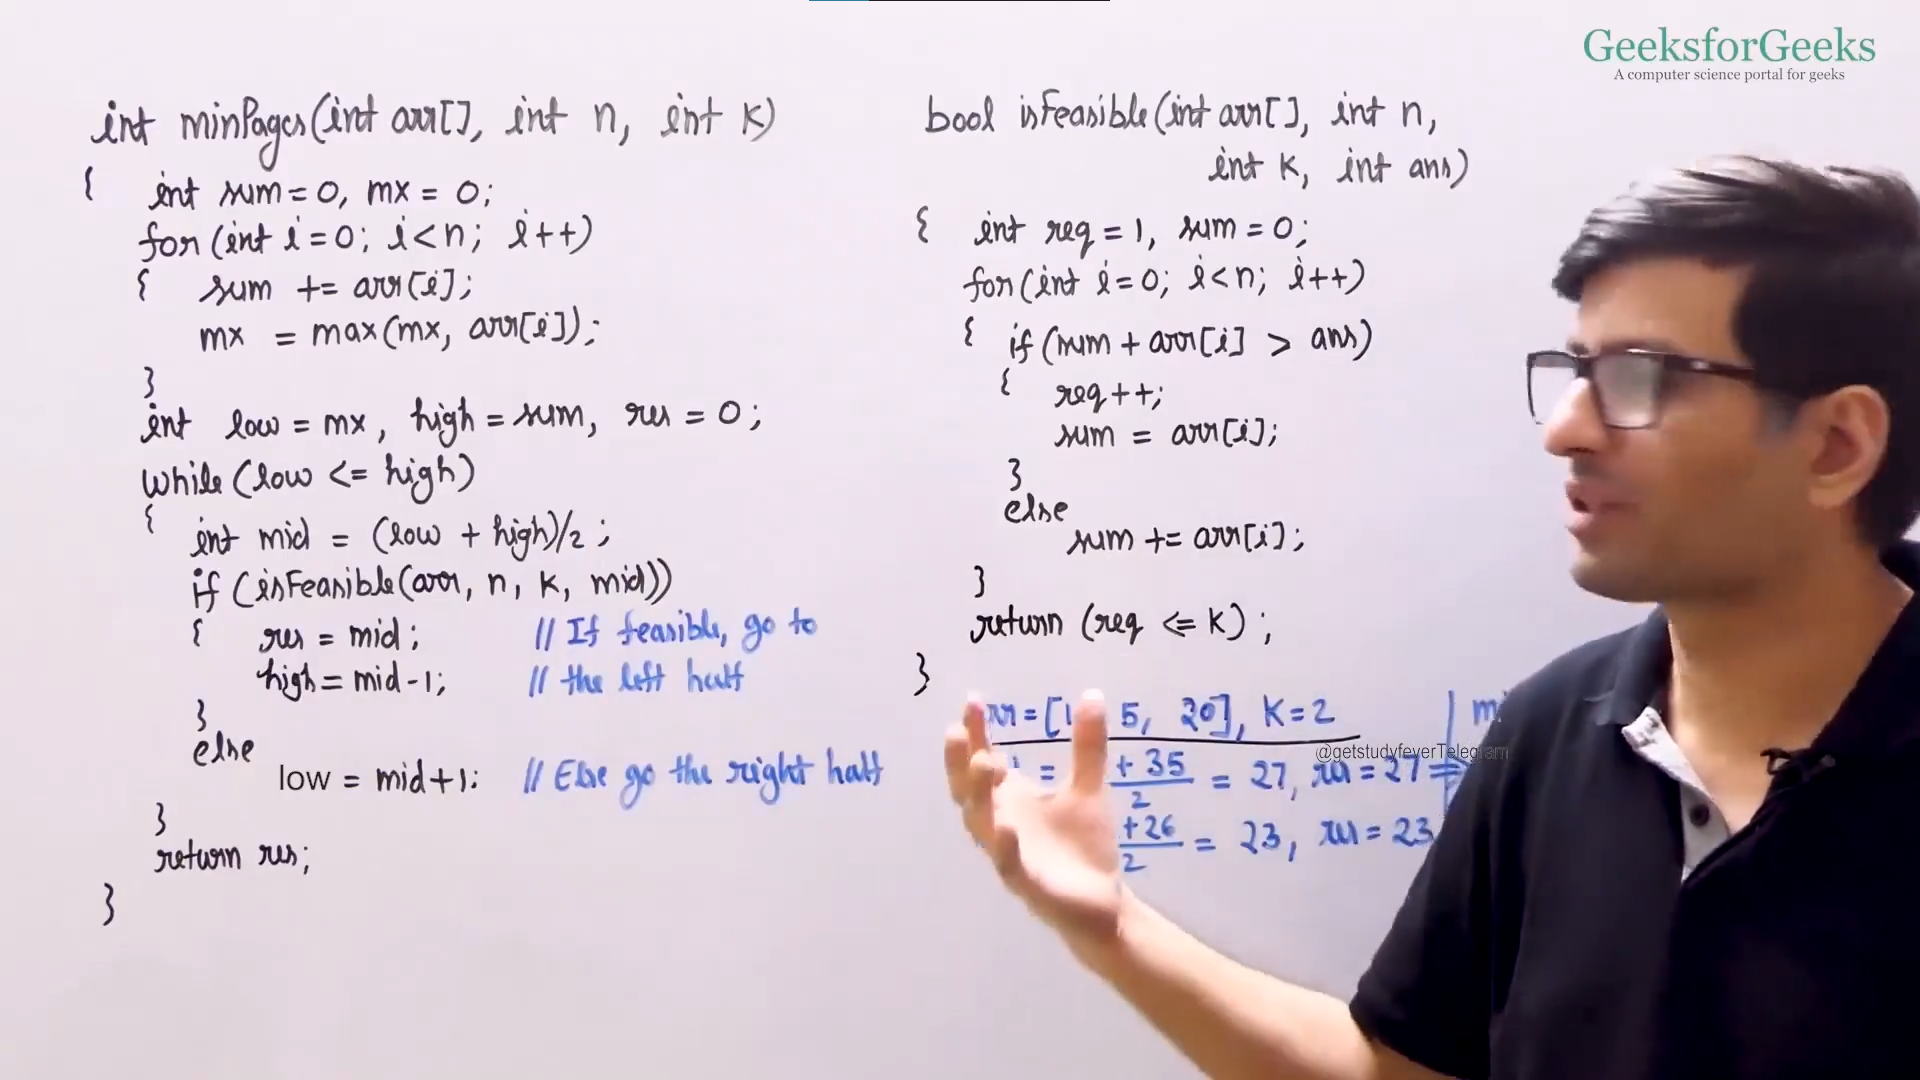 GeeksforGeeks
A computer science portal for geeks
int minPages(int arr[], int n, int k)
{ int sum = 0, mx = 0;
for (int i = 0; i < n; i++)
{ sum += arr[i];
mx = max(mx, arr[i]);
}
int low = mx, high = sum, res = 0;
while (low <= high)
{
int mid = (low + high)/2;
if (isFeasible(arr, n, k, mid))
{ res = mid; // If feasible, go to
high = mid-1; // the left half
}
else
low = mid+1; // Else go the right half
}
return res;
}
bool isFeasible(int arr[], int n,
int k, int ans)
{ int req = 1, sum = 0;
for (int i = 0; i < n; i++)
{ if (sum + arr[i] > ans)
{ req++;
sum = arr[i];
}
else
sum += arr[i];
}
return (req <= k);
}
= [1 5, 20], k = 2
@getstudyfeverTelegram
= + 35 / 2 = 27, res = 27
+ 26 / 2 = 23, res = 23